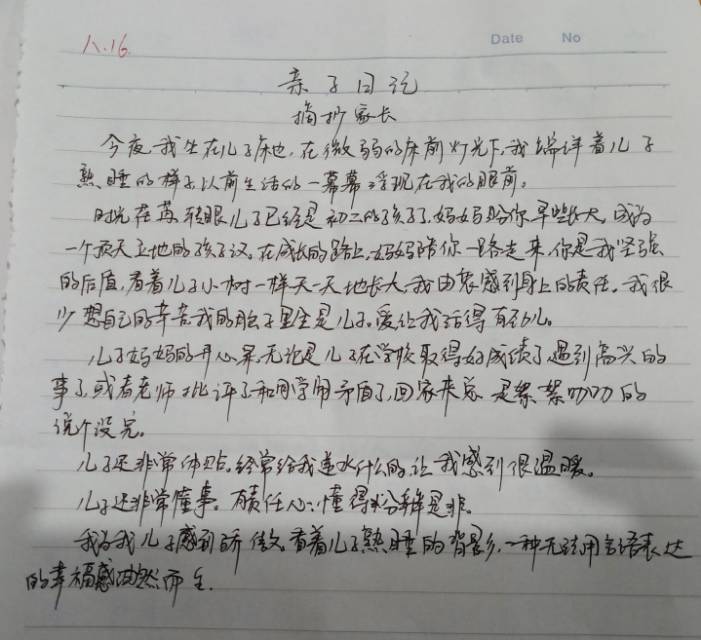 八.16
Date No
亲子日记
摘抄家长
今夜,我坐在儿子床边,在微弱的床前灯光下,我端详着儿子
熟睡的样子,以前生活的一幕幕浮现在我的眼前。
时光荏苒,转眼儿子已经是初二的孩子了,妈妈盼你早些长大,成为
一个顶天立地的男子汉。在成长的路上,妈妈陪你一路走来,你是我坚强
的后盾,看着儿子小树一样天一天地长大,我由衷感到身上的责任。我很
少想自己的辛苦,我的脑子里全是儿子。爱让我活得有劲儿。
儿子妈妈的开心果,无论是儿在学校取得好成绩了,遇到高兴的
事了,或者老师批评了和同学闹矛盾了,回家来总是絮絮叨叨的
说个没完。
儿子还非常体贴,经常给我递水什么的,让我感到很温暖。
儿子还非常懂事。有责任心,懂得分辨是非。
我为我儿子感到骄傲,看着儿子熟睡的背影,一种无法用言语表达
的幸福感油然而生.